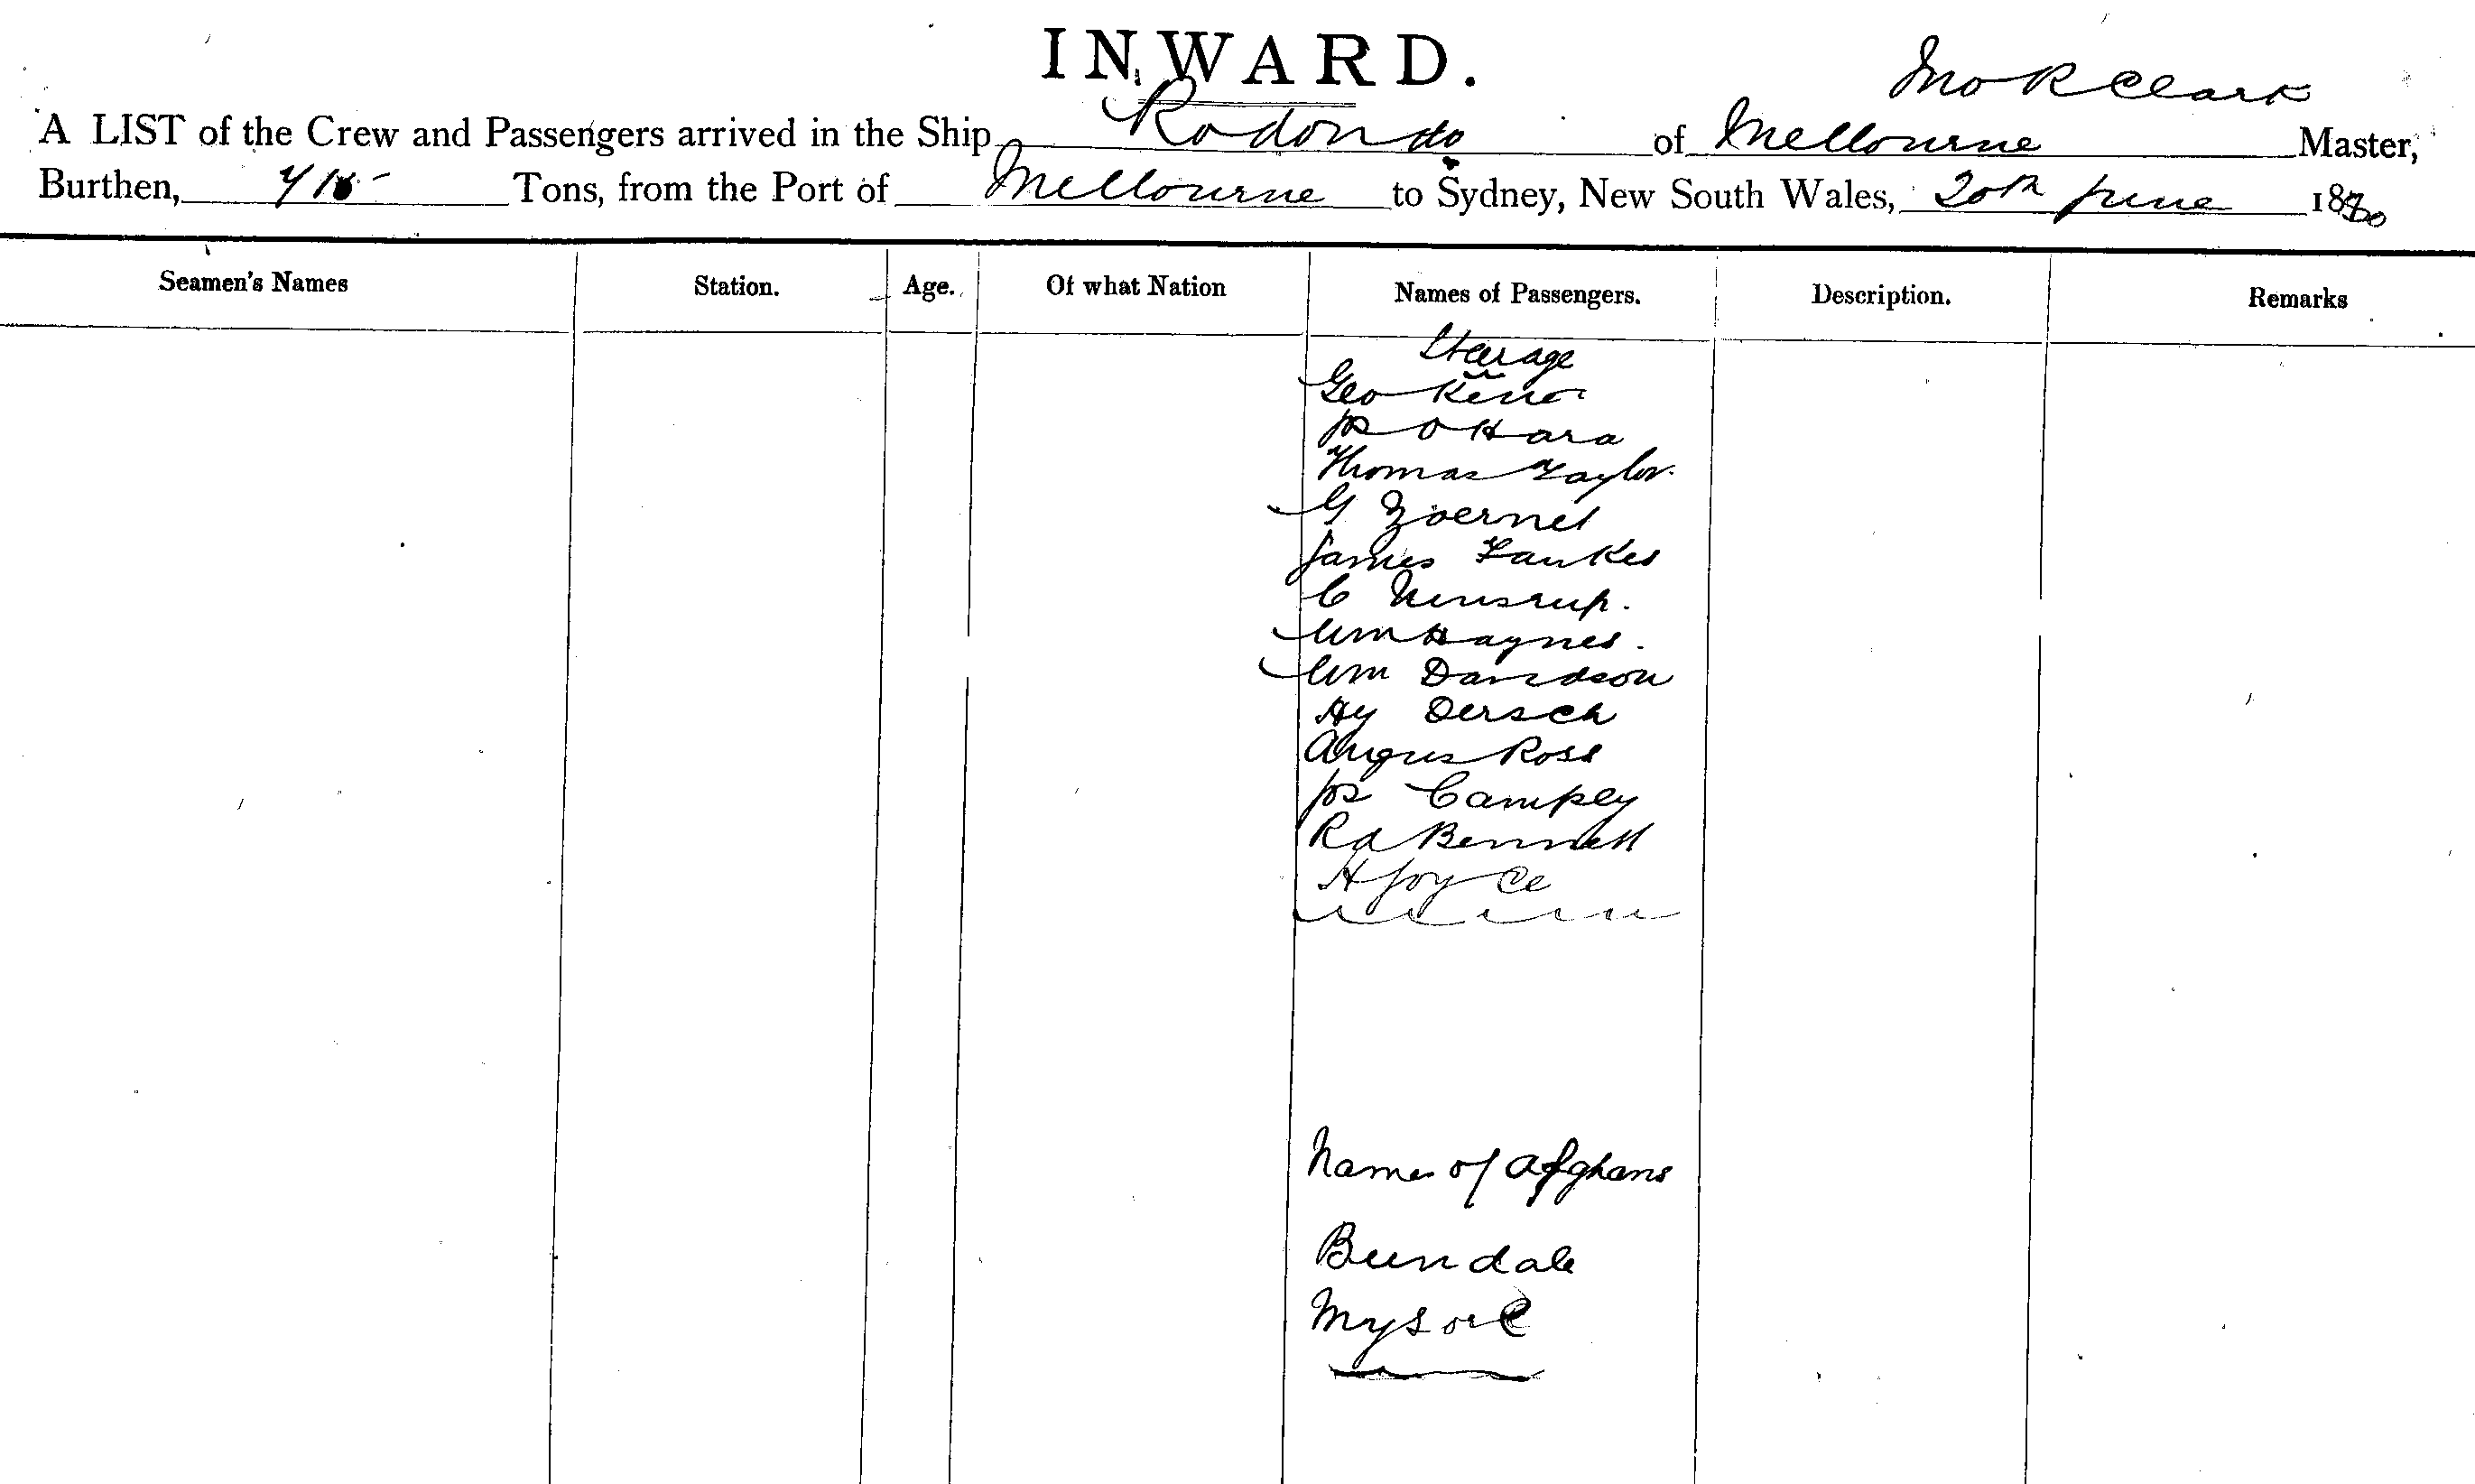 INWARD.
Jno R Clark
A LIST of the Crew and Passengers arrived in the Ship Rodondo of Melbourne Master,
Burthen, Tons, from the Port of Melbourne to Sydney, New South Wales, 20th June 18
Seamen's Names Station. Age. Of what Nation Names of Passengers. Description. Remarks
Steerage
Geo
Js O Hara
Thomas Taylor.
G Zoernel
James Faukes
C
Wm Haynes.
Wm Davidson
Hy Dersch
Angus Ross
Js Campey
Rd Bennett
H Joyce
Names of Afghans
Bundale
Mysore